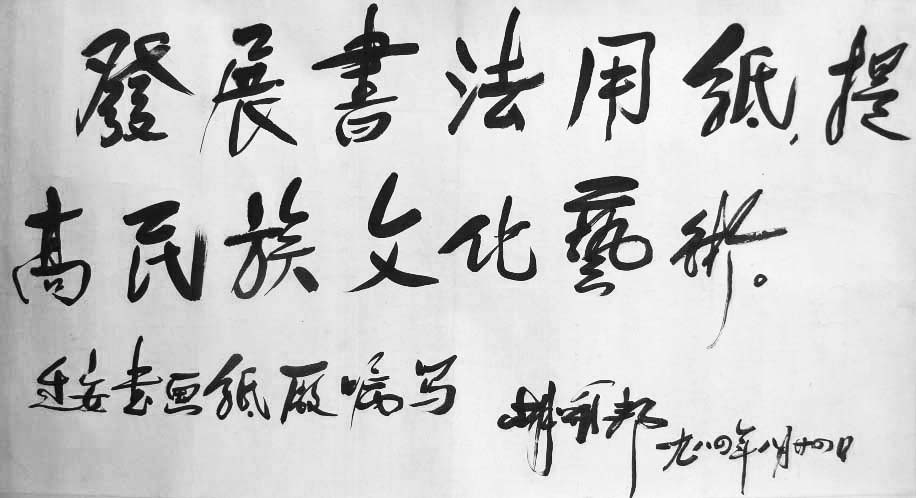 發展書法用紙,提
高民族文化藝術。
迁安书画紙廠嘱写
胡耀邦
一九八四年八月廿四日